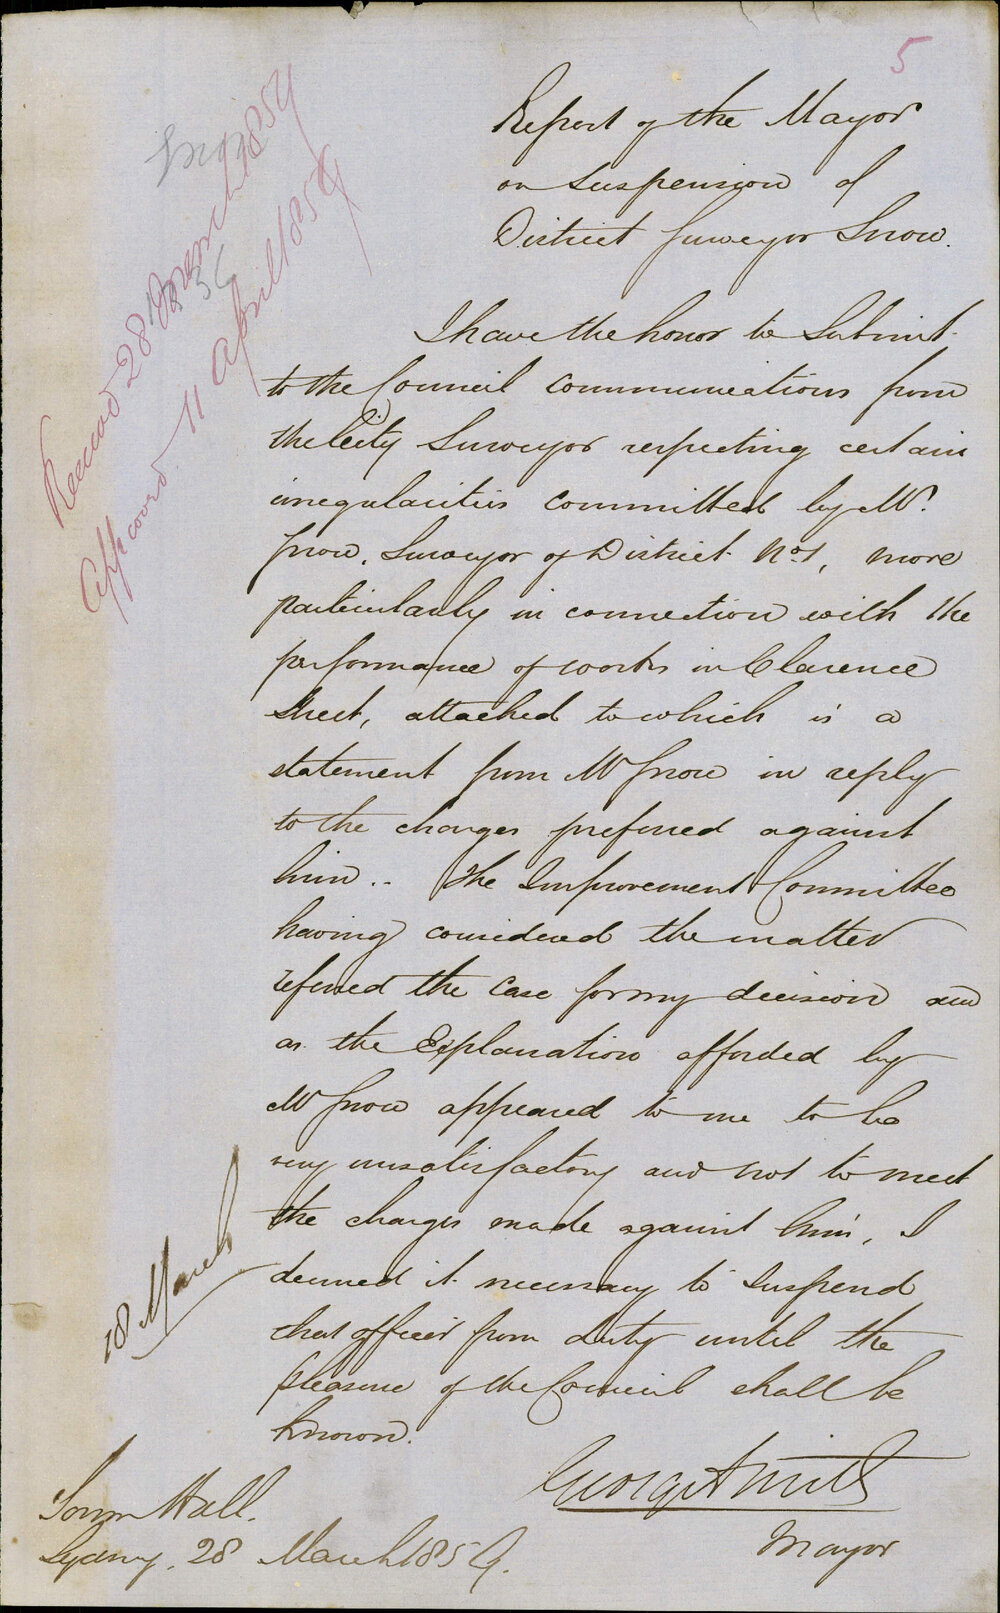 5
Report of the Mayor
on Suspension of
District Surveyor Snow.
I have the honor to Submit
to the Council communications from
the City Surveyor respecting certain
irregularities committed by Mr.
Snow, Surveyor of District No 1, more
particularly in connection with the
performance of works in Clarence
Street, attached to which is a
statement from Mr Snow in reply
to the charges preferred against
him.. The Improvement Committee
having considered the matter
referred the Case for my decision and
as the Explanation afforded by
Mr Snow appeared to me to be
very unsatisfactory and not to meet
the charges made against him, I
deemed it necessary to Suspend
that officer from duty until the
pleasure of the Council shall be
known.
George Smith
Mayor
Town Hall.
Sydney. 28 March 1859.
28 March 1859
11 April 1859
18 March